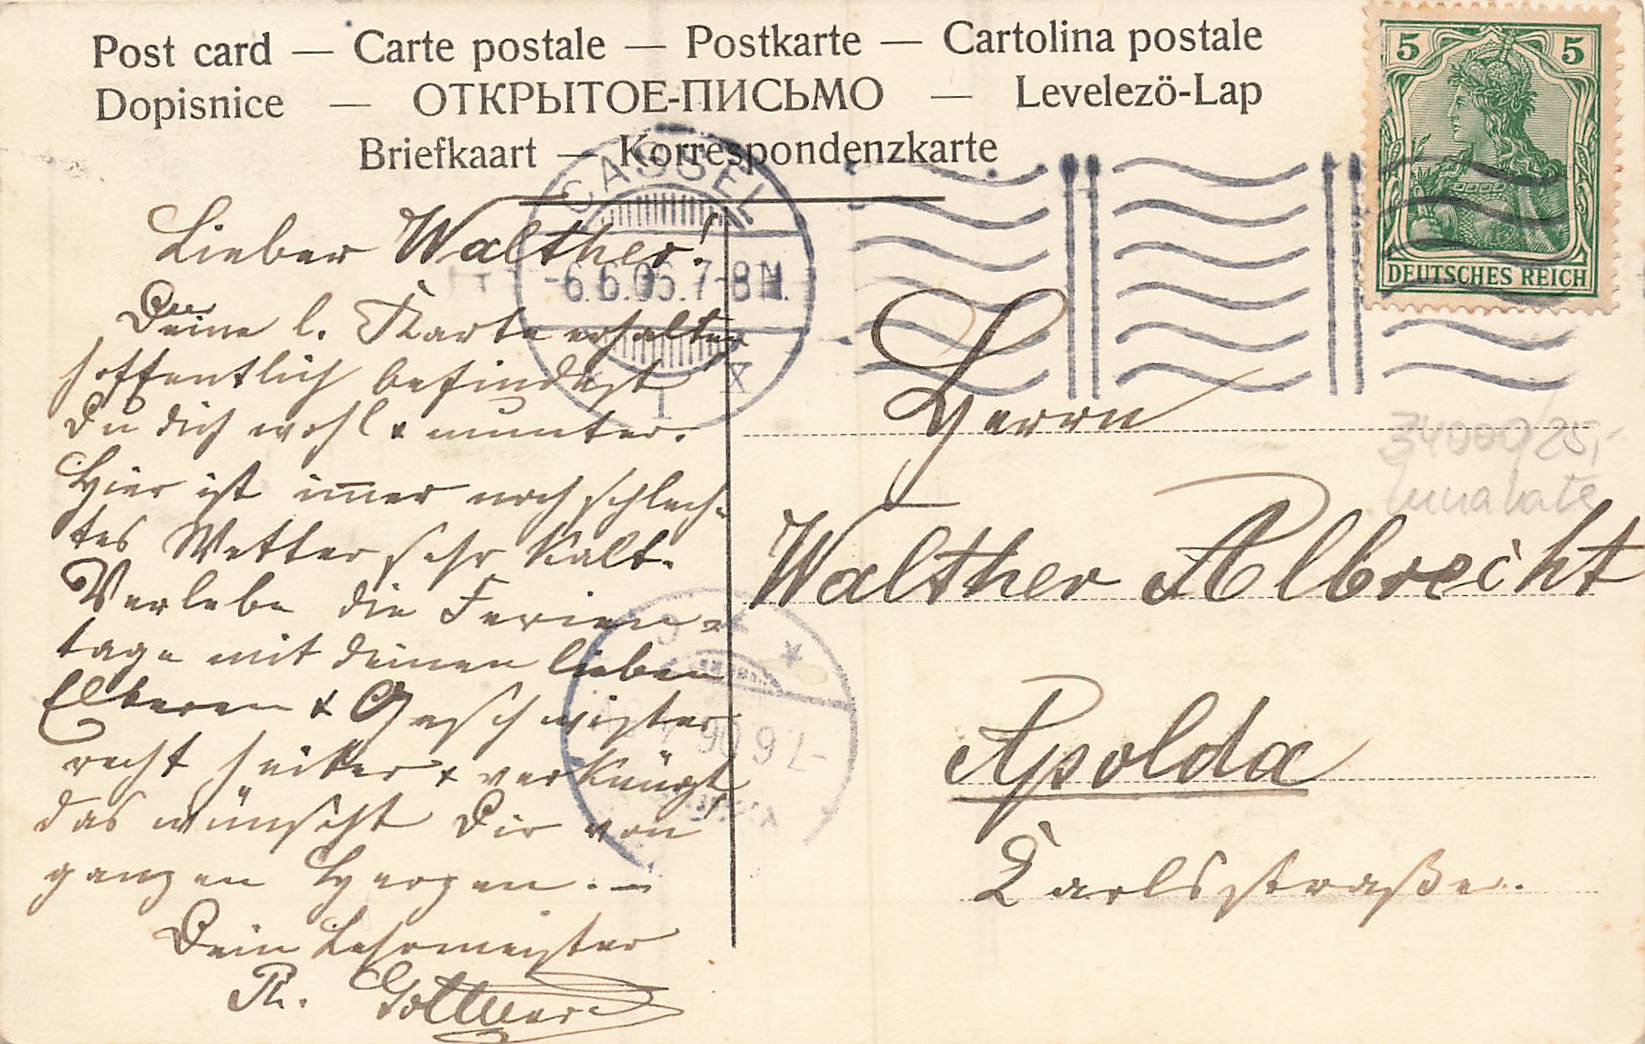 Post card — Carte postale — Postkarte — Cartolina postale
Dopisnice — ОТКРЫТОЕ-ПИСЬМО — Levelezö-Lap
Briefkaart — Korrespondenzkarte
5 5
DEUTSCHES REICH
CASSEL
-6.6.06.7-8N.
1 x
Lieber Walther!
Deine l. Karte erhalten
hoffentlich befindest
Du dich wohl & munter.
Hier ist immer noch schlech-
tes Wetter sehr kalt.
Verlebe die Ferien-
tage mit deinen lieben
Elteren & Geschwister
recht heiter & vergnügt
das wünscht Dir von
ganzen Herzen. —
Dein Lehrmeister
Ph.
Herrn
Walther Albrecht
Apolda
Karlsstraße.
7.6.06
34000/25,-